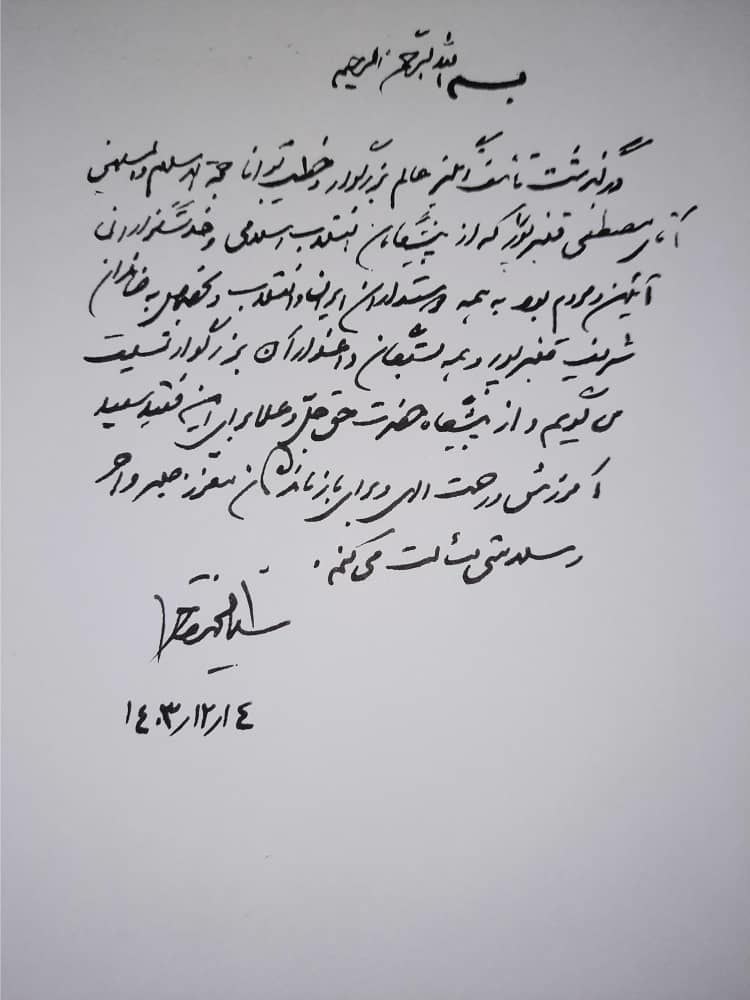 بسم الله الرحمن الرحیم
درگذشت تأسف انگیز عالم بزرگوار و خطیب توانا حجة الاسلام والمسلمین
آقای مصطفی قنبرپور که از پیشگامان انقلاب اسلامی و خدمتگزاران
آئین و مردم بود به همه دوستداران ایران و انقلاب و بخصوص به خاندان
شریف قنبرپور و همه بستگان و اعضواران بزرگوار تسلیت
می گویم و از پیشگاه حضرت حق جل و علا برای این فقید سعید
آمرزش و رحمت الهی و برای بازماندگان معزز صبر و اجر
و سلامتی مسألت می کنم.
۱٤۰۳/۱۲/۱٤